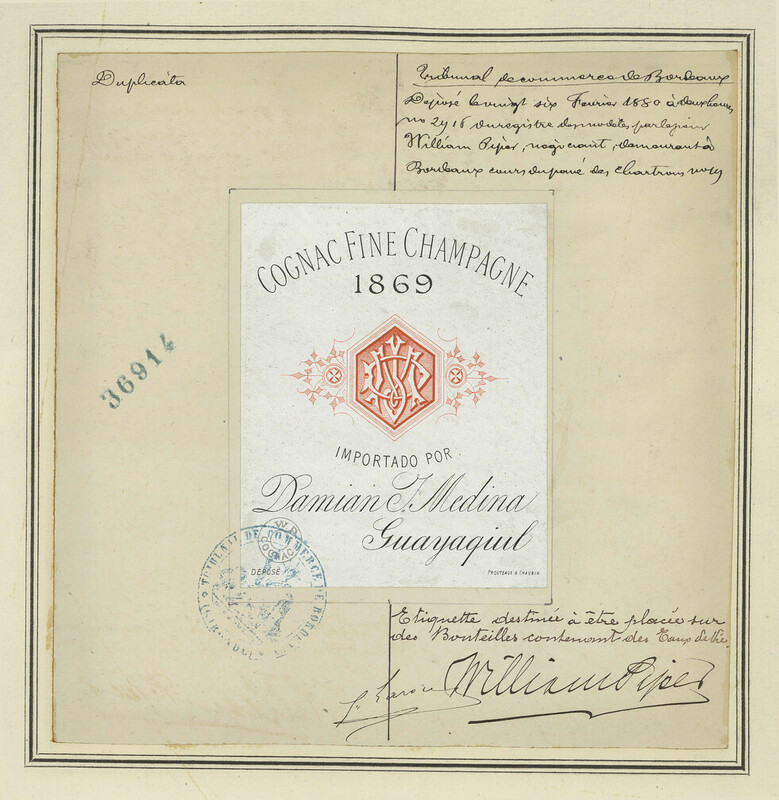 Duplicata
Tribunal de commerce de Bordeaux
Déposé le vingt six Février 1880 à deux heures
no 2916 du registre des modèles par le sieur
William Piper, négociant, demeurant à
Bordeaux cours du pavé des Chartrons no
COGNAC FINE CHAMPAGNE
1869
36914
IMPORTADO POR
Damian J. Medina
Guayaqiul
W.P.
COGNAC
DÉPOSÉ
PROUTEAUX & CHAUBIN
TRIBUNAL DE COMMERCE DE BORDEAUX
Etiquette destinée à être placée sur
des Bouteilles contenant des Eaux de Vie.
William Piper